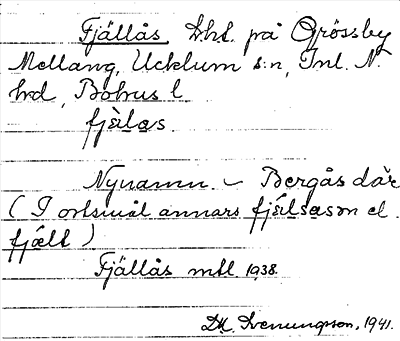 Fjällås Lht. på Grössby
Mellang, Ucklum s:n, Inl. N.
hrd, Bohus l.
fjälas.
Nynamn. – Bergås där
(I ortsmål annars fjälsasон el.
fjält)
Fjällås mtl 1938.
D.H. Svenungson, 1941.